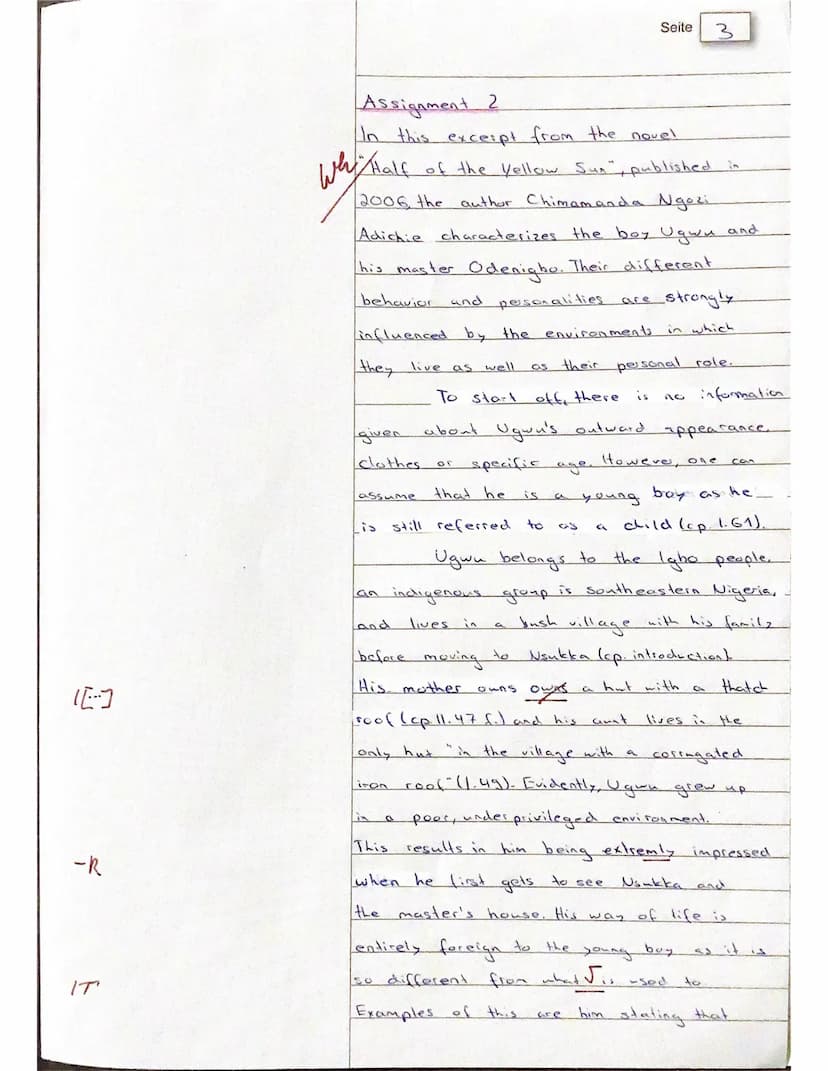 Seite 3
Assignment 2
In this excerpt from the novel
Wh "Half of the Yellow Sun", published in
2006, the author Chimamanda Ngozi
Adichie characterizes the boy Ugwu and
his master Odenigbo. Their different
behavior and pesonalities are strongly
influenced by the environments in which
they live as well as their personal role.
To start off, there is no information
given about Ugwu's outward appearance,
clothes or specific age. However, one can
assume that he is a young boy as he
is still referred to as a child (cp. l. 61).
Ugwu belongs to the Igbo people,
an indigenous group is Southeastern Nigeria,
and lives in a bush village with his family
before moving to Nsukka (cp. introduction).
His mother owns owns a hut with a thatch
I[...]
roof (cp ll. 47 f.) and his aunt lives in the
only hut "in the village with a corrugated
iron roof" (l. 49). Evidently, Ugwu grew up
in a poor, underprivileged environment.
This results in him being extremly impressed
-R
when he first gets to see Nsukka and
the master's house. His way of life is
entirely foreign to the young boy as it is
so different from what √ is used to.
IT
Examples of this are him stating that